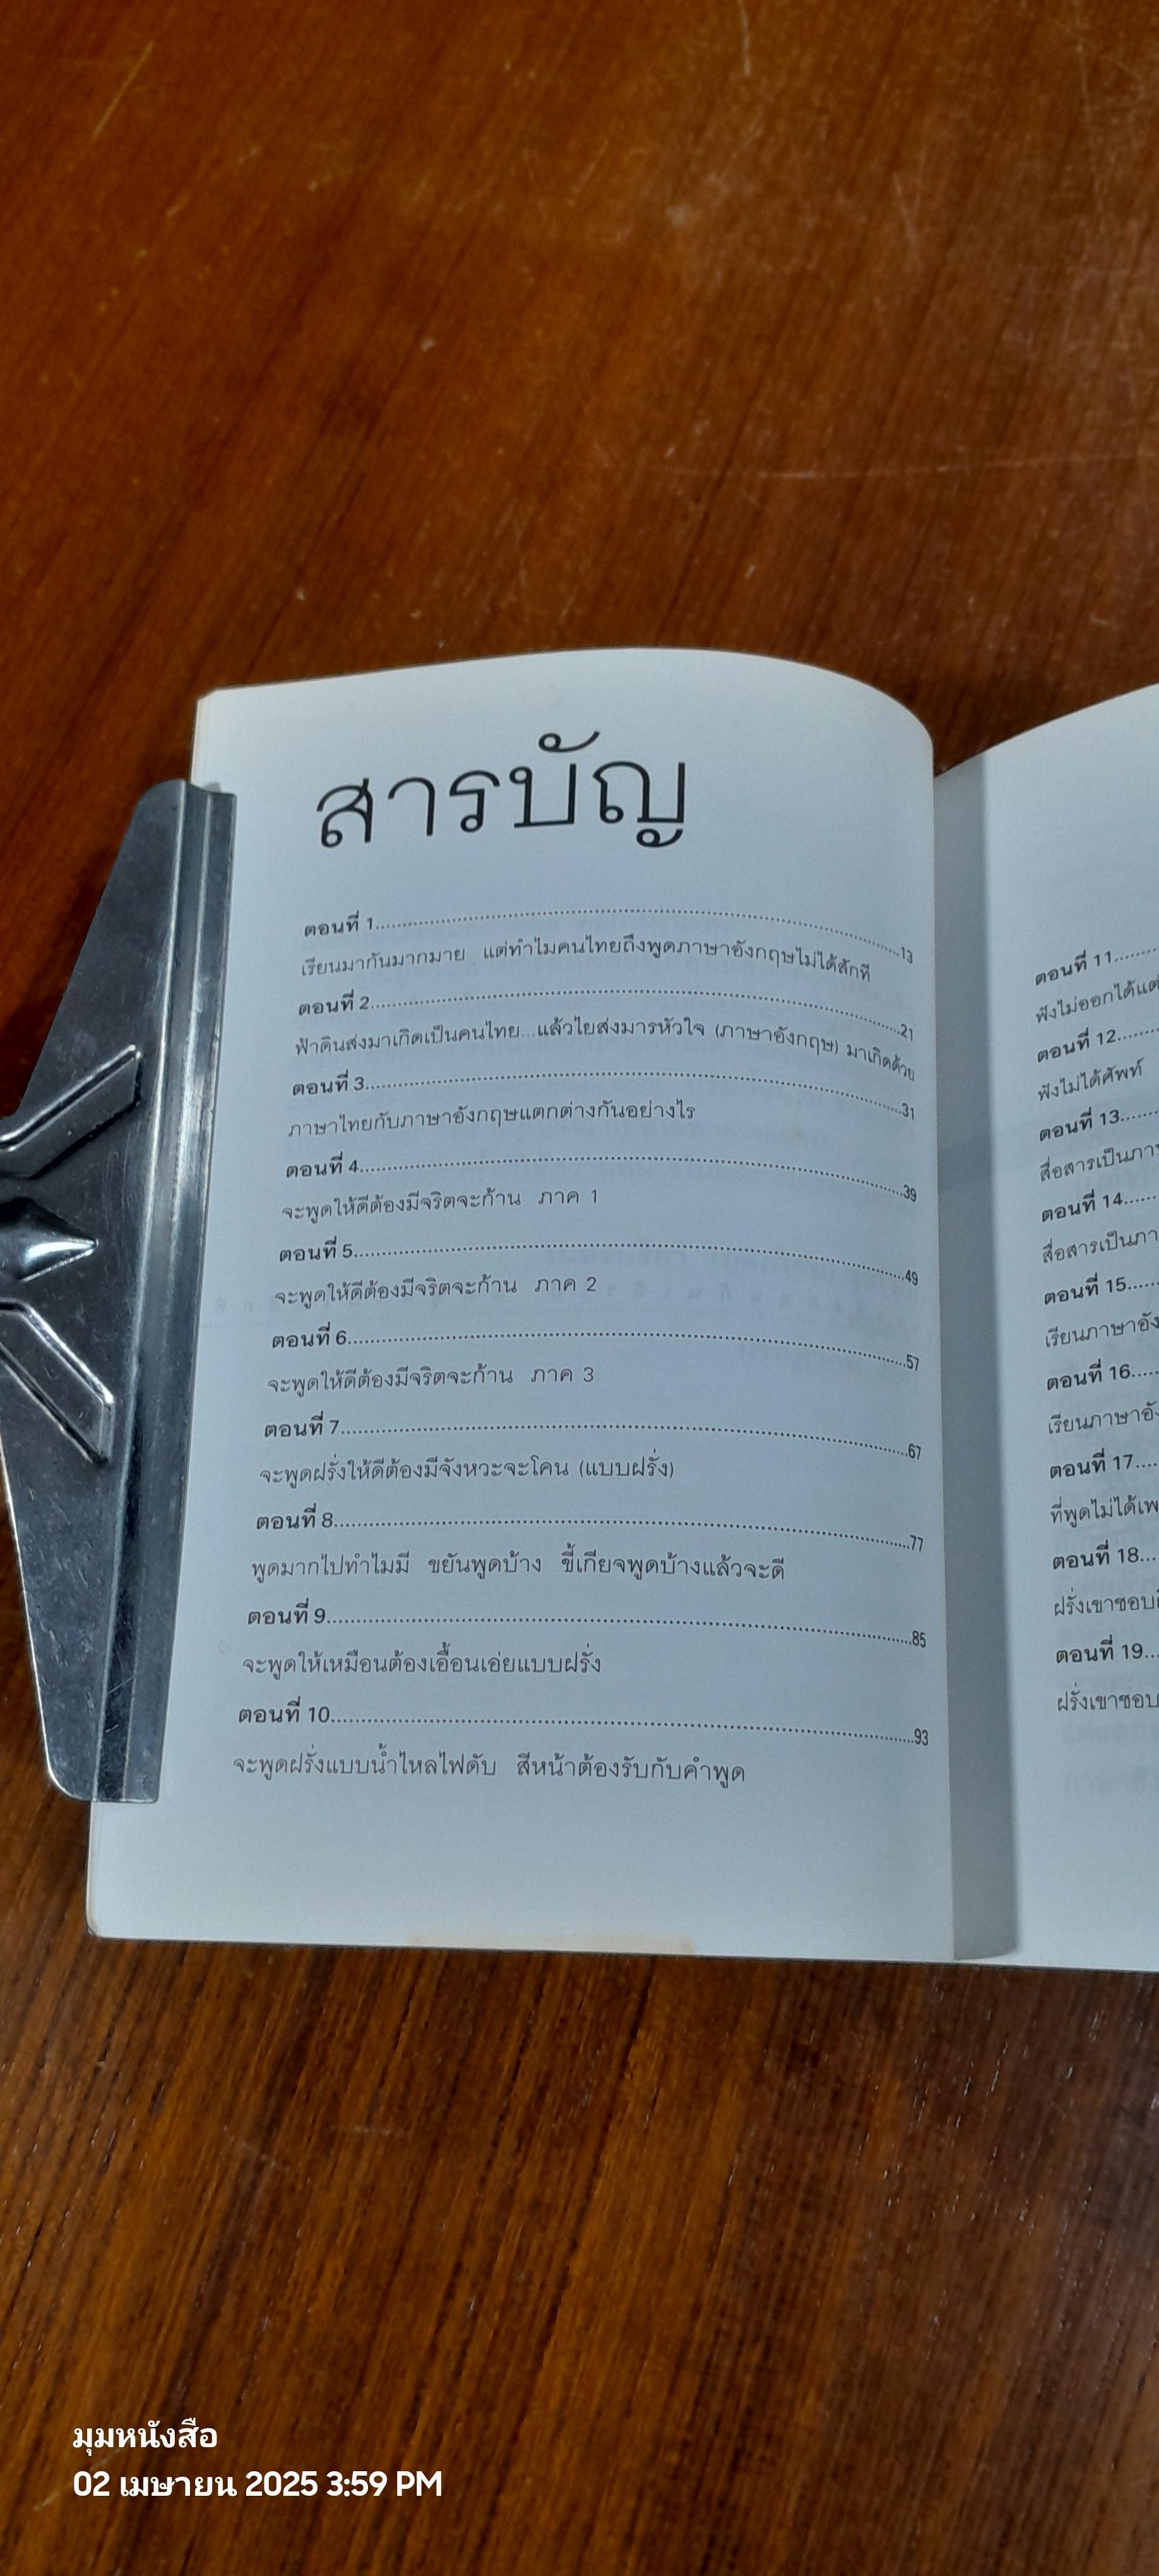 สารบัญ
ตอนที่ 1..........13
เรียนมากันมากมาย แต่ทำไมคนไทยถึงพูดภาษาอังกฤษไม่ได้สักที
ตอนที่ 2..........21
ฟ้าดินส่งมาเกิดเป็นคนไทย...แล้วไยส่งมารหัวใจ (ภาษาอังกฤษ) มาเกิดด้วย
ตอนที่ 3..........31
ภาษาไทยกับภาษาอังกฤษแตกต่างกันอย่างไร
ตอนที่ 4..........39
จะพูดให้ดีต้องมีจริตจะก้าน ภาค 1
ตอนที่ 5..........49
จะพูดให้ดีต้องมีจริตจะก้าน ภาค 2
ตอนที่ 6..........57
จะพูดให้ดีต้องมีจริตจะก้าน ภาค 3
ตอนที่ 7..........67
จะพูดฝรั่งให้ดีต้องมีจังหวะจะโคน (แบบฝรั่ง)
ตอนที่ 8..........77
พูดมากไปทำไมมี ขยันพูดบ้าง ขี้เกียจพูดบ้างแล้วจะดี
ตอนที่ 9..........85
จะพูดให้เหมือนต้องเอื้อนเอ่ยแบบฝรั่ง
ตอนที่ 10..........93
จะพูดฝรั่งแบบน้ำไหลไฟดับ สีหน้าต้องรับกับคำพูด
ตอนที่ 11..........
ฟังไม่ออกได้แต่
ตอนที่ 12..........
ฟังไม่ได้ศัพท์
ตอนที่ 13..........
สื่อสารเป็นภา
ตอนที่ 14..........
สื่อสารเป็นภา
ตอนที่ 15..........
เรียนภาษาอัง
ตอนที่ 16..........
เรียนภาษาอัง
ตอนที่ 17..........
ที่พูดไม่ได้เพ
ตอนที่ 18..........
ฝรั่งเขาชอบ
ตอนที่ 19..........
ฝรั่งเขาชอบ
มุมหนังสือ
02 เมษายน 2025 3:59 PM